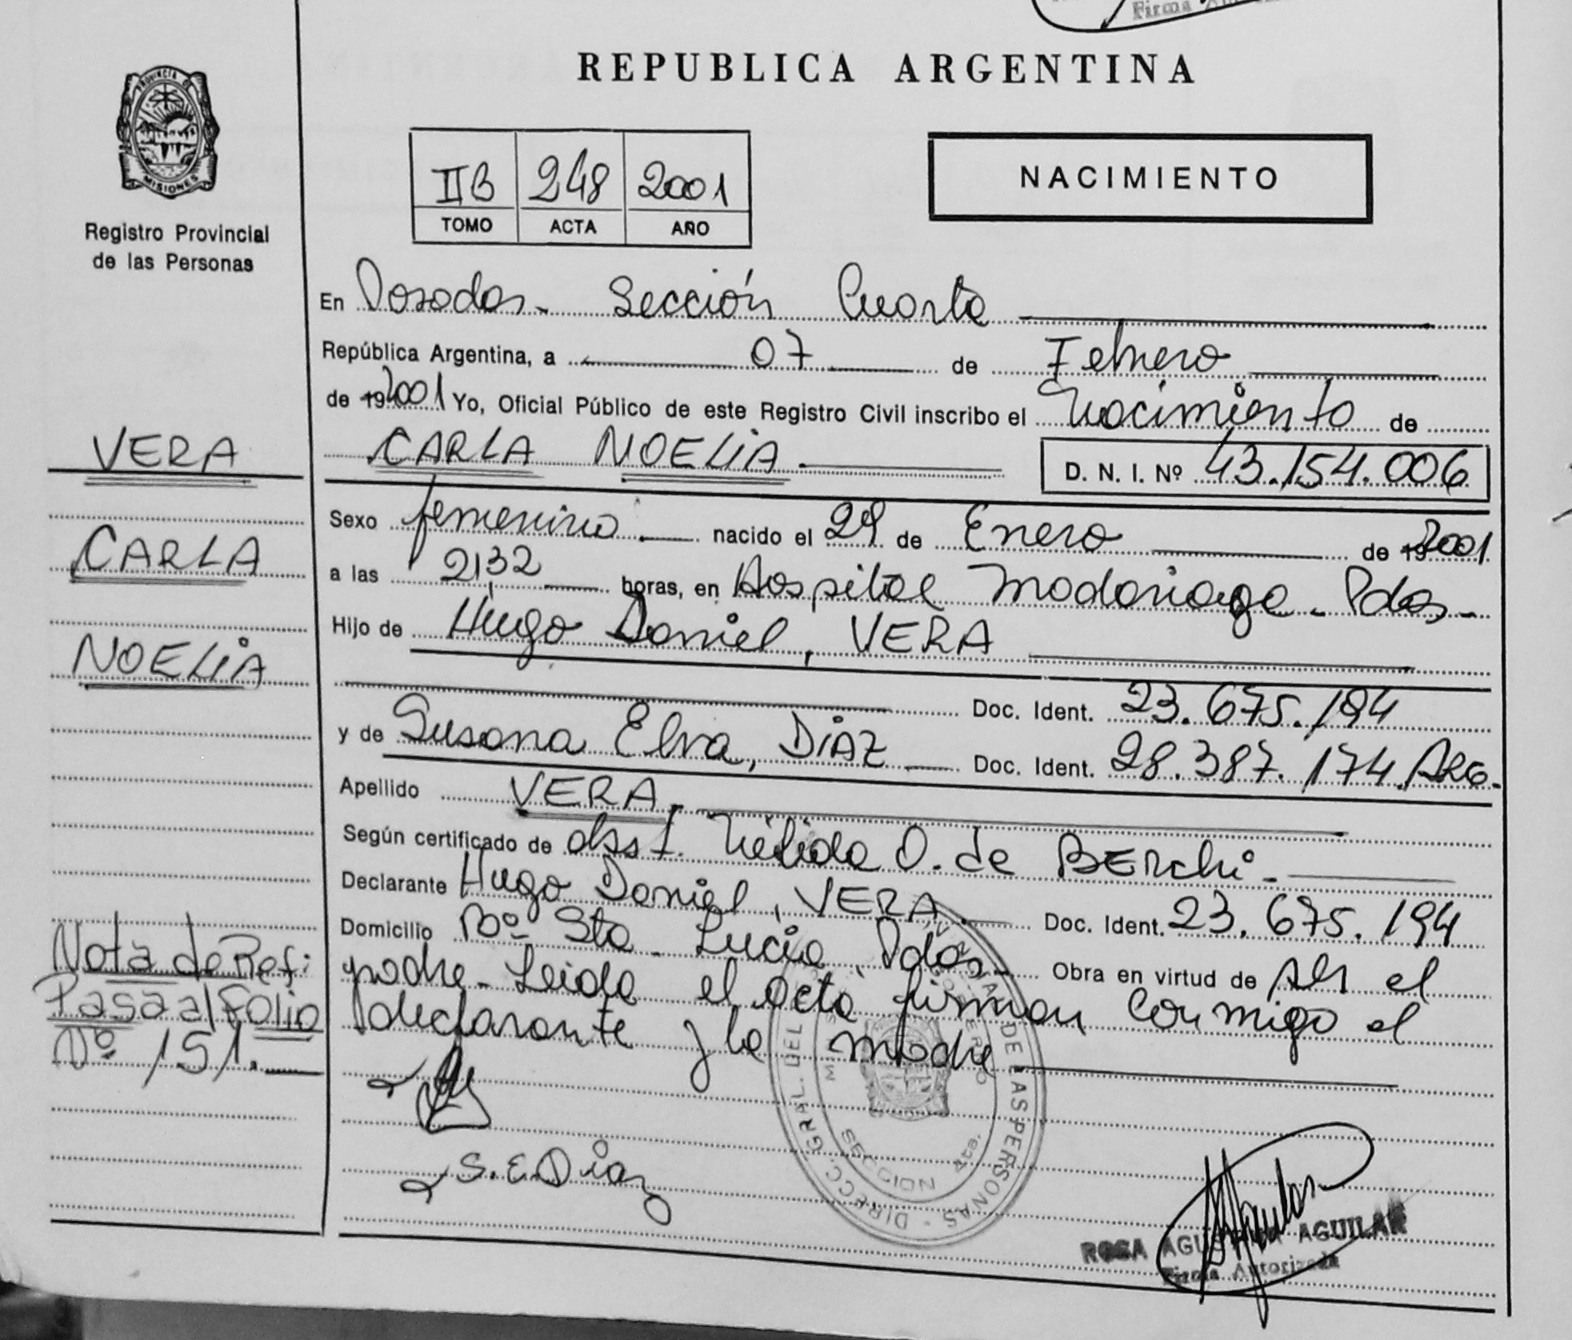 Firma
REPUBLICA ARGENTINA
PROVINCIA DE
MISIONES
Registro Provincial
de las Personas
IIB 248 2001
TOMO ACTA AÑO
NACIMIENTO
En Posadas - Sección Cuarta
República Argentina, a 07 de Febrero
de 192001 Yo, Oficial Público de este Registro Civil inscribo el Nacimiento de
CARLA NOELIA D. N. I. Nº 43.154.006
VERA
CARLA
NOELIA
Sexo femenino nacido el 29 de Enero de 192001
a las 21,32 horas, en Hospital Madariaga - Pdas -
Hijo de Hugo Daniel, VERA
Doc. Ident. 23.675.194
y de Susana Elva, DIAZ Doc. Ident. 28.387.174 ARG.
Apellido VERA
Según certificado de obst. Nélida O. de BERchi -
Declarante Hugo Daniel, VERA Doc. Ident. 23.675.194
Domicilio Bº Sta. Lucia Pdas - Obra en virtud de ser el
padre - Leida el acta firman conmigo el
declarante y la madre
Nota de Ref:
Pasa al Folio
Nº 151.
S. E. Diaz
DIRECC. GRAL. DEL DE LAS PERSONAS
SECCION 4ta.
ROSA AGUILAR
Firma Autorizada